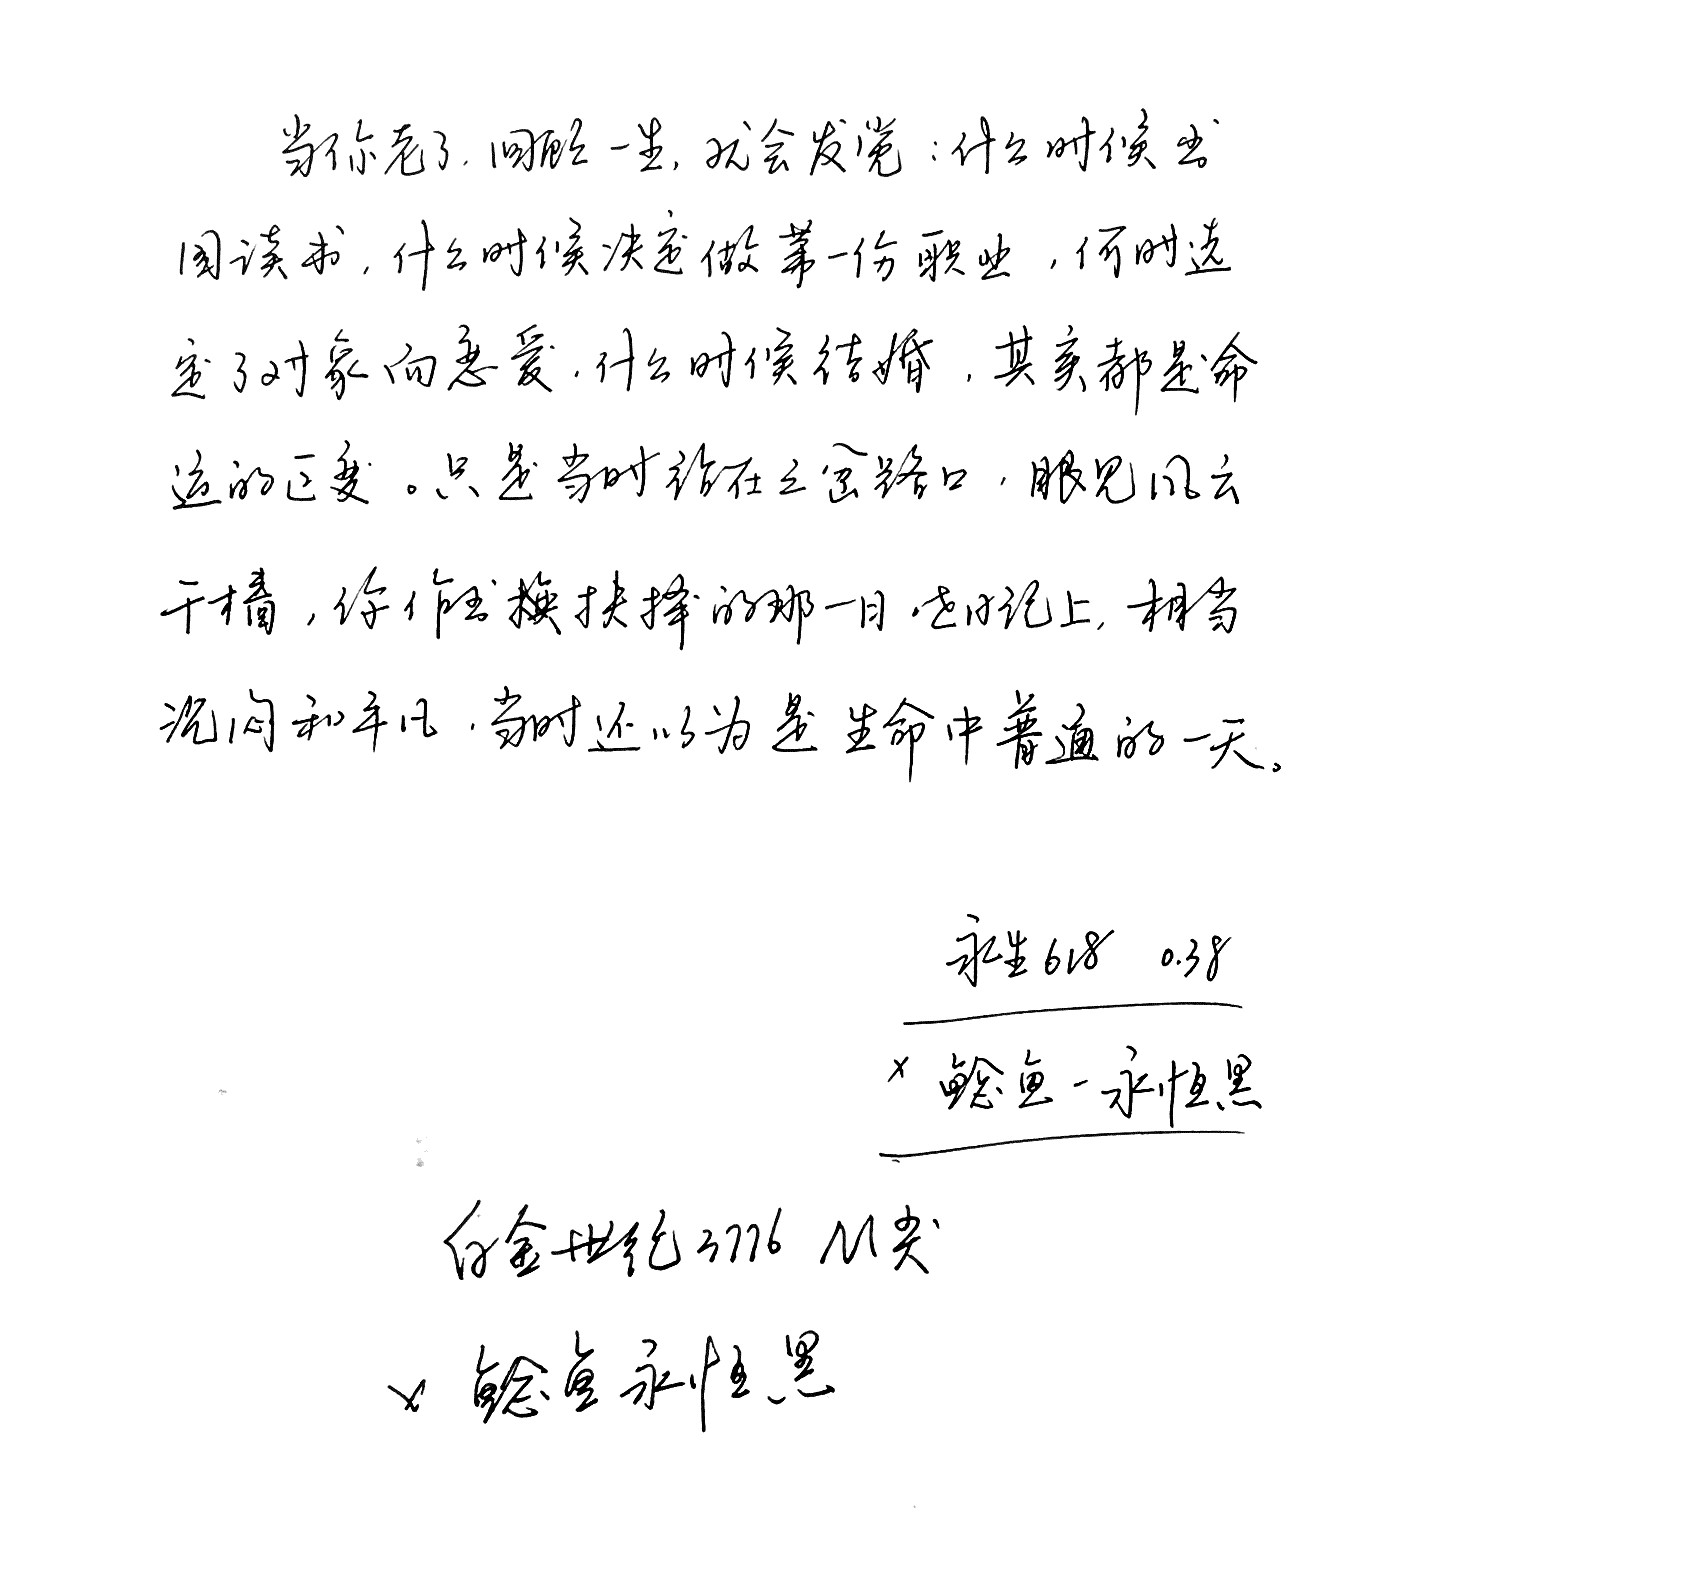 当你老了，回顾一生，就会发觉：什么时候出
国读书，什么时候决定做第一份职业，何时选
定了对象而恋爱，什么时候结婚，其实都是命
运的巨变。只是当时站在三岔路口，眼见风云
千樯，你作出抉择的那一日，在日记上，相当
沉闷和平凡，当时还以为是生命中普通的一天。
永生618 0.38
× 鲶鱼-永恒黑
白金世纪3776 M尖
× 鲶鱼永恒黑